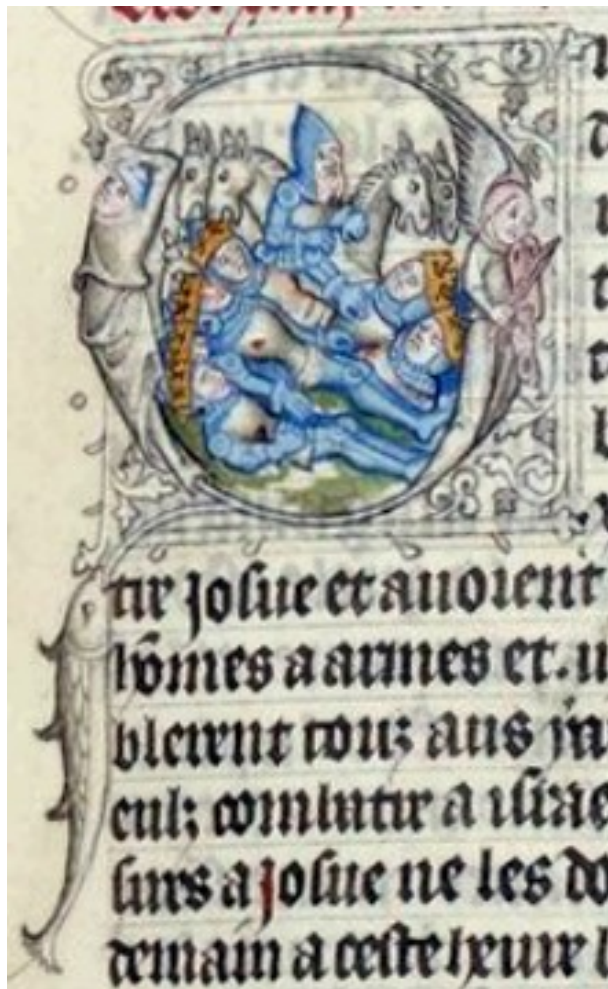 tir Josue et auoient
hōmes a armes et. u
blerent touz aus
eulz combatir a israe
surs a Josue ne les do
demain a ceste heure